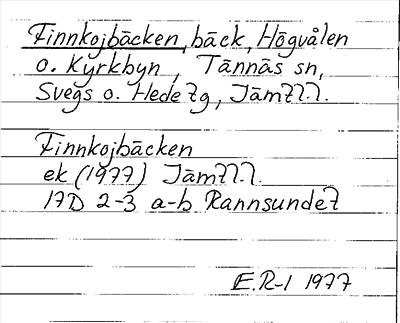 Finnkojbäcken, bäck, Högvålen
o. Kyrkbyn, Tännäs sn,
Svegs o. Hede tg, Jämtl.
Finnkojbäcken
ek (1977) Jämtl.
17D 2-3 a-b Rannsundet
E.R-l 1977